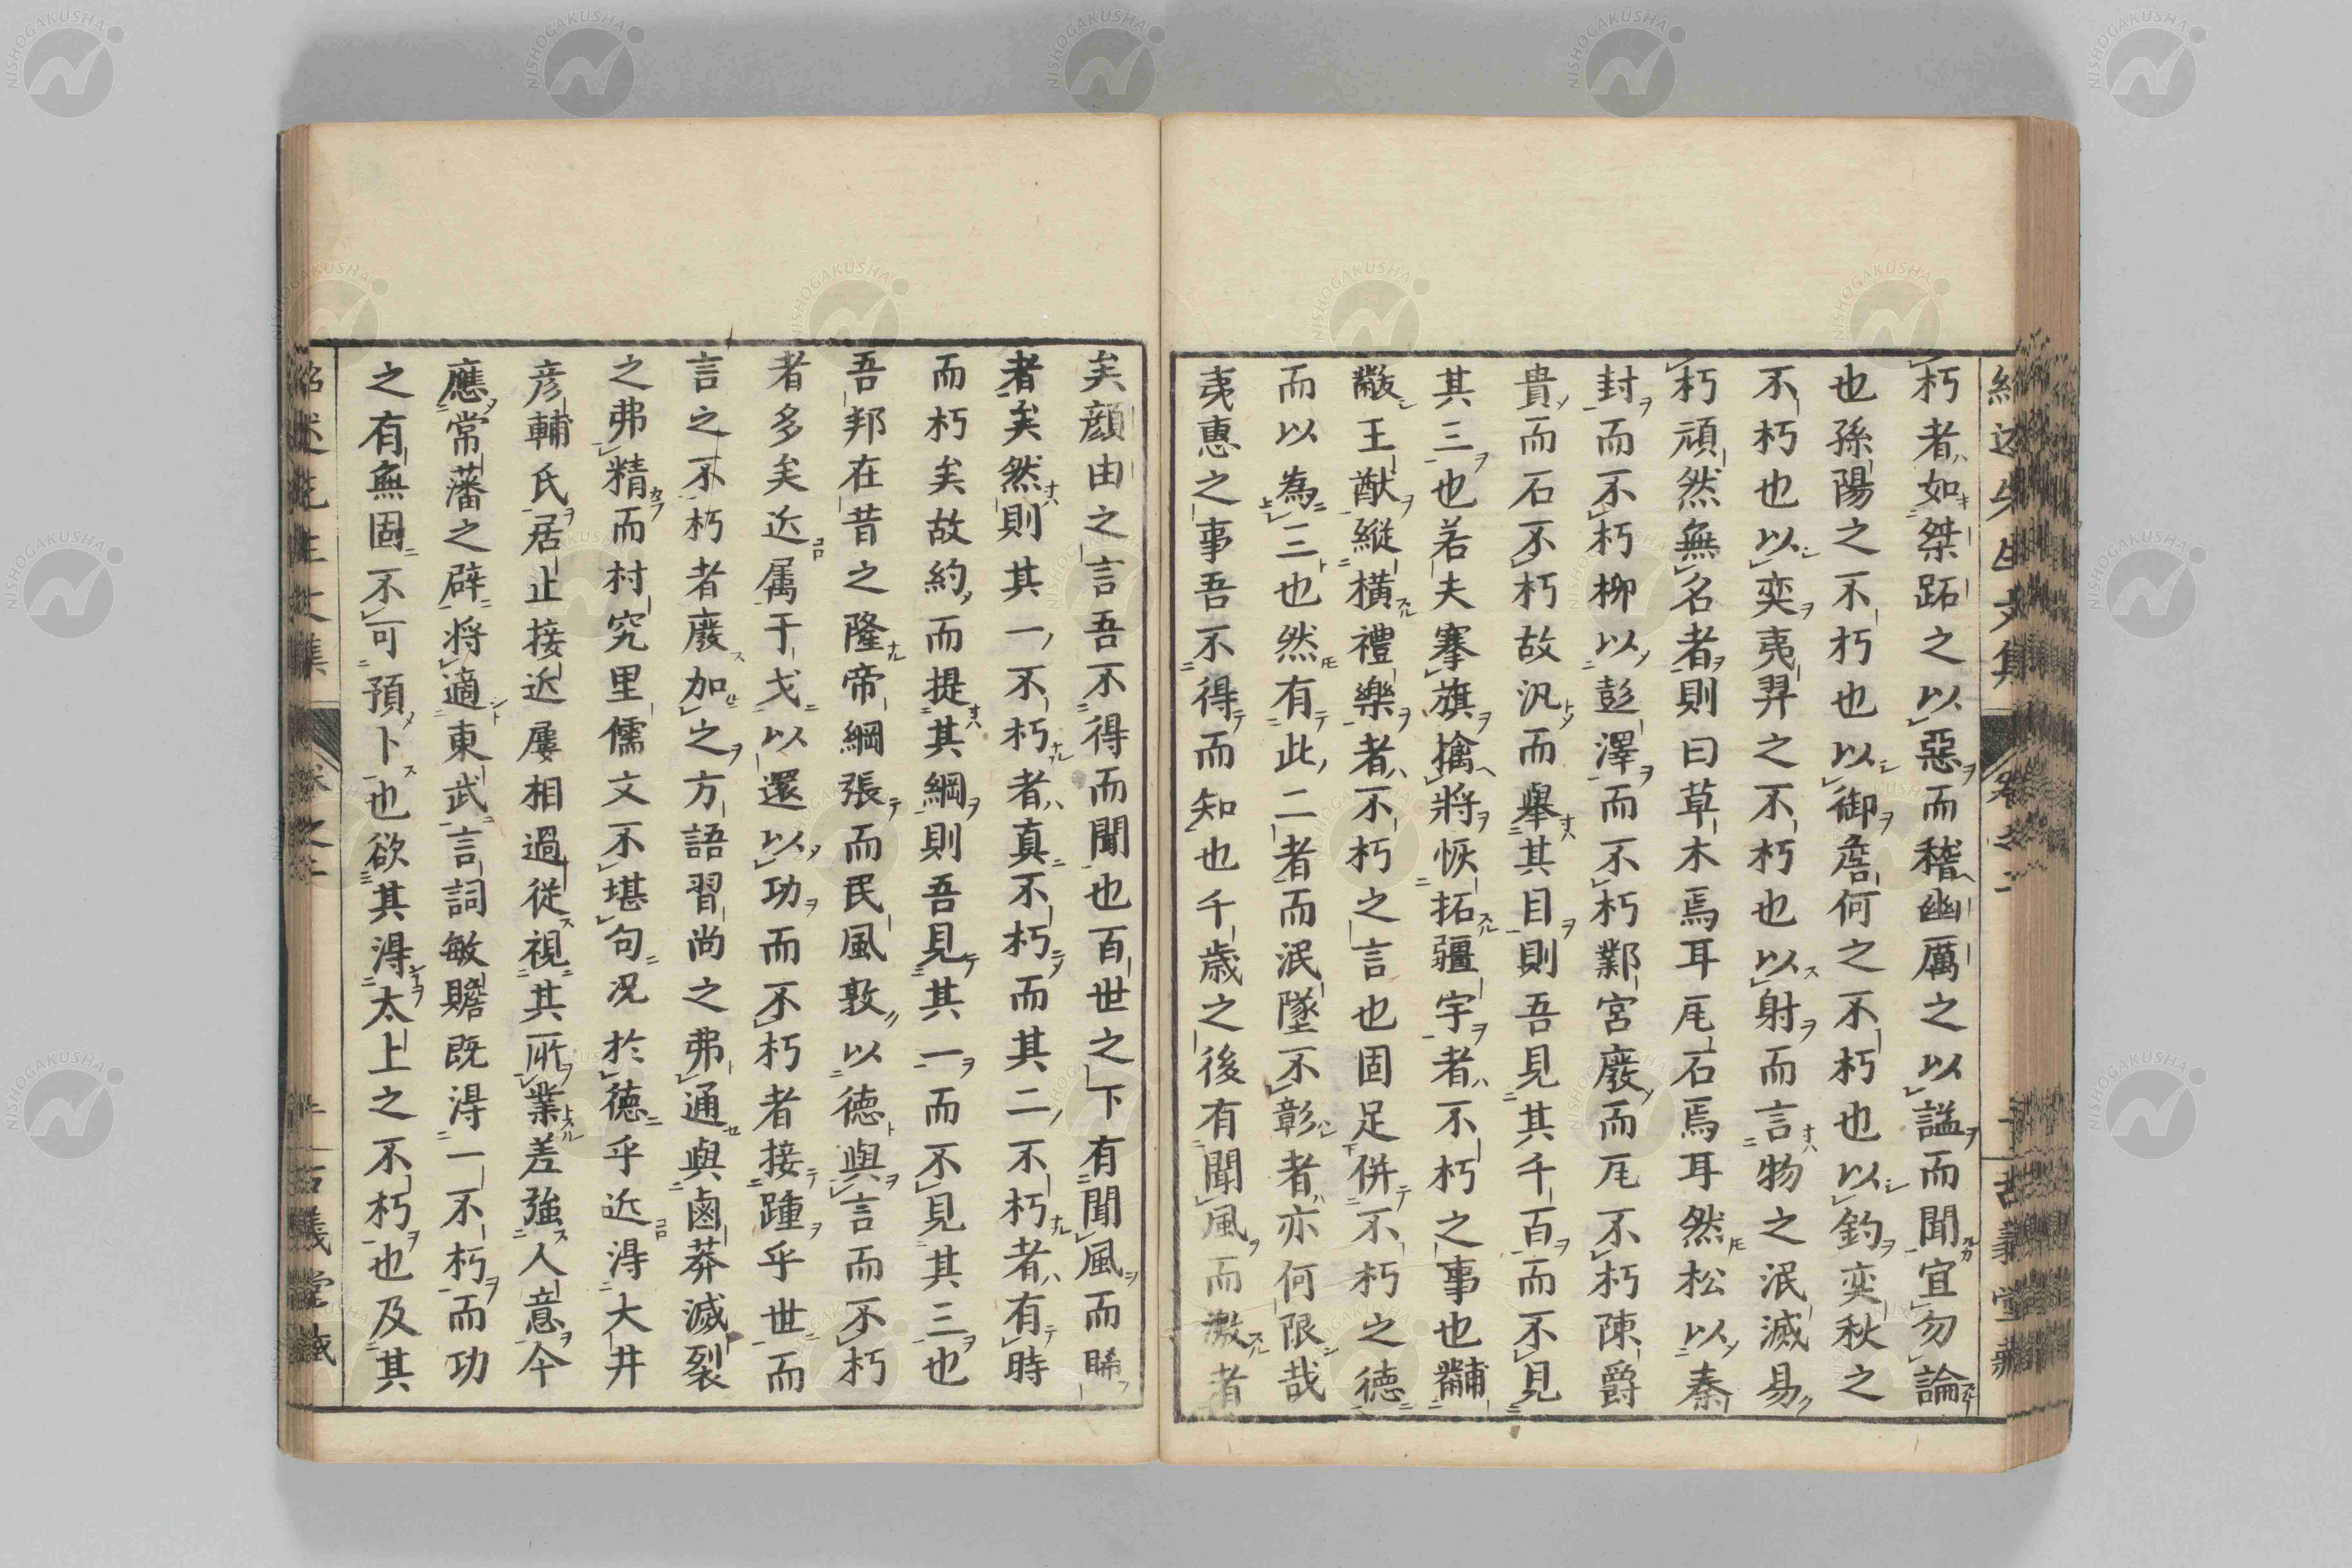 朽者如桀跖之以惡而稽幽厲之以諡而聞宜勿論
也孫陽之不朽也以御詹何之不朽也以釣奕秋之
不朽也以奕夷羿之不朽也以射而言物之泯滅易
朽頑然無名者則曰草木焉耳瓦石焉耳然松以秦
封而不朽柳以彭澤而不朽鄴宮廢而瓦不朽陳爵
貴而石不朽故汎而舉其目則吾見其千百而不見
其三也若夫搴旗擒將恢拓疆宇者不朽之事也黼
黻王猷縱橫禮樂者不朽之言也固足併不朽之德
而以為三也然有此二者而泯墜不彰者亦何限哉
夷惠之事吾不得而知也千歲之後有聞風而激者
矣顏由之言吾不得而聞也百世之下有聞風而睎
者矣然則其一不朽者真不朽而其二不朽者有時
而朽矣故約而提其綱則吾見其一而不見其三也
吾邦在昔之隆帝綱張而民風敦以德與言而不朽
者多矣近属于戈以還以功而不朽者接踵乎世而
言之不朽者廢加之方語習尚之弗通與鹵莽滅裂
之弗精而村究里儒文不堪句况於德乎近得大井
彦輔氏居止接近屢相過從視其所業差強人意今
應常藩之辟將適東武言詞敏贍既得一不朽而功
之有無固不可預卜也欲其得太上之不朽也及其
紹述先生文集
卷之二
古義堂藏
NISHOGAKUSHA